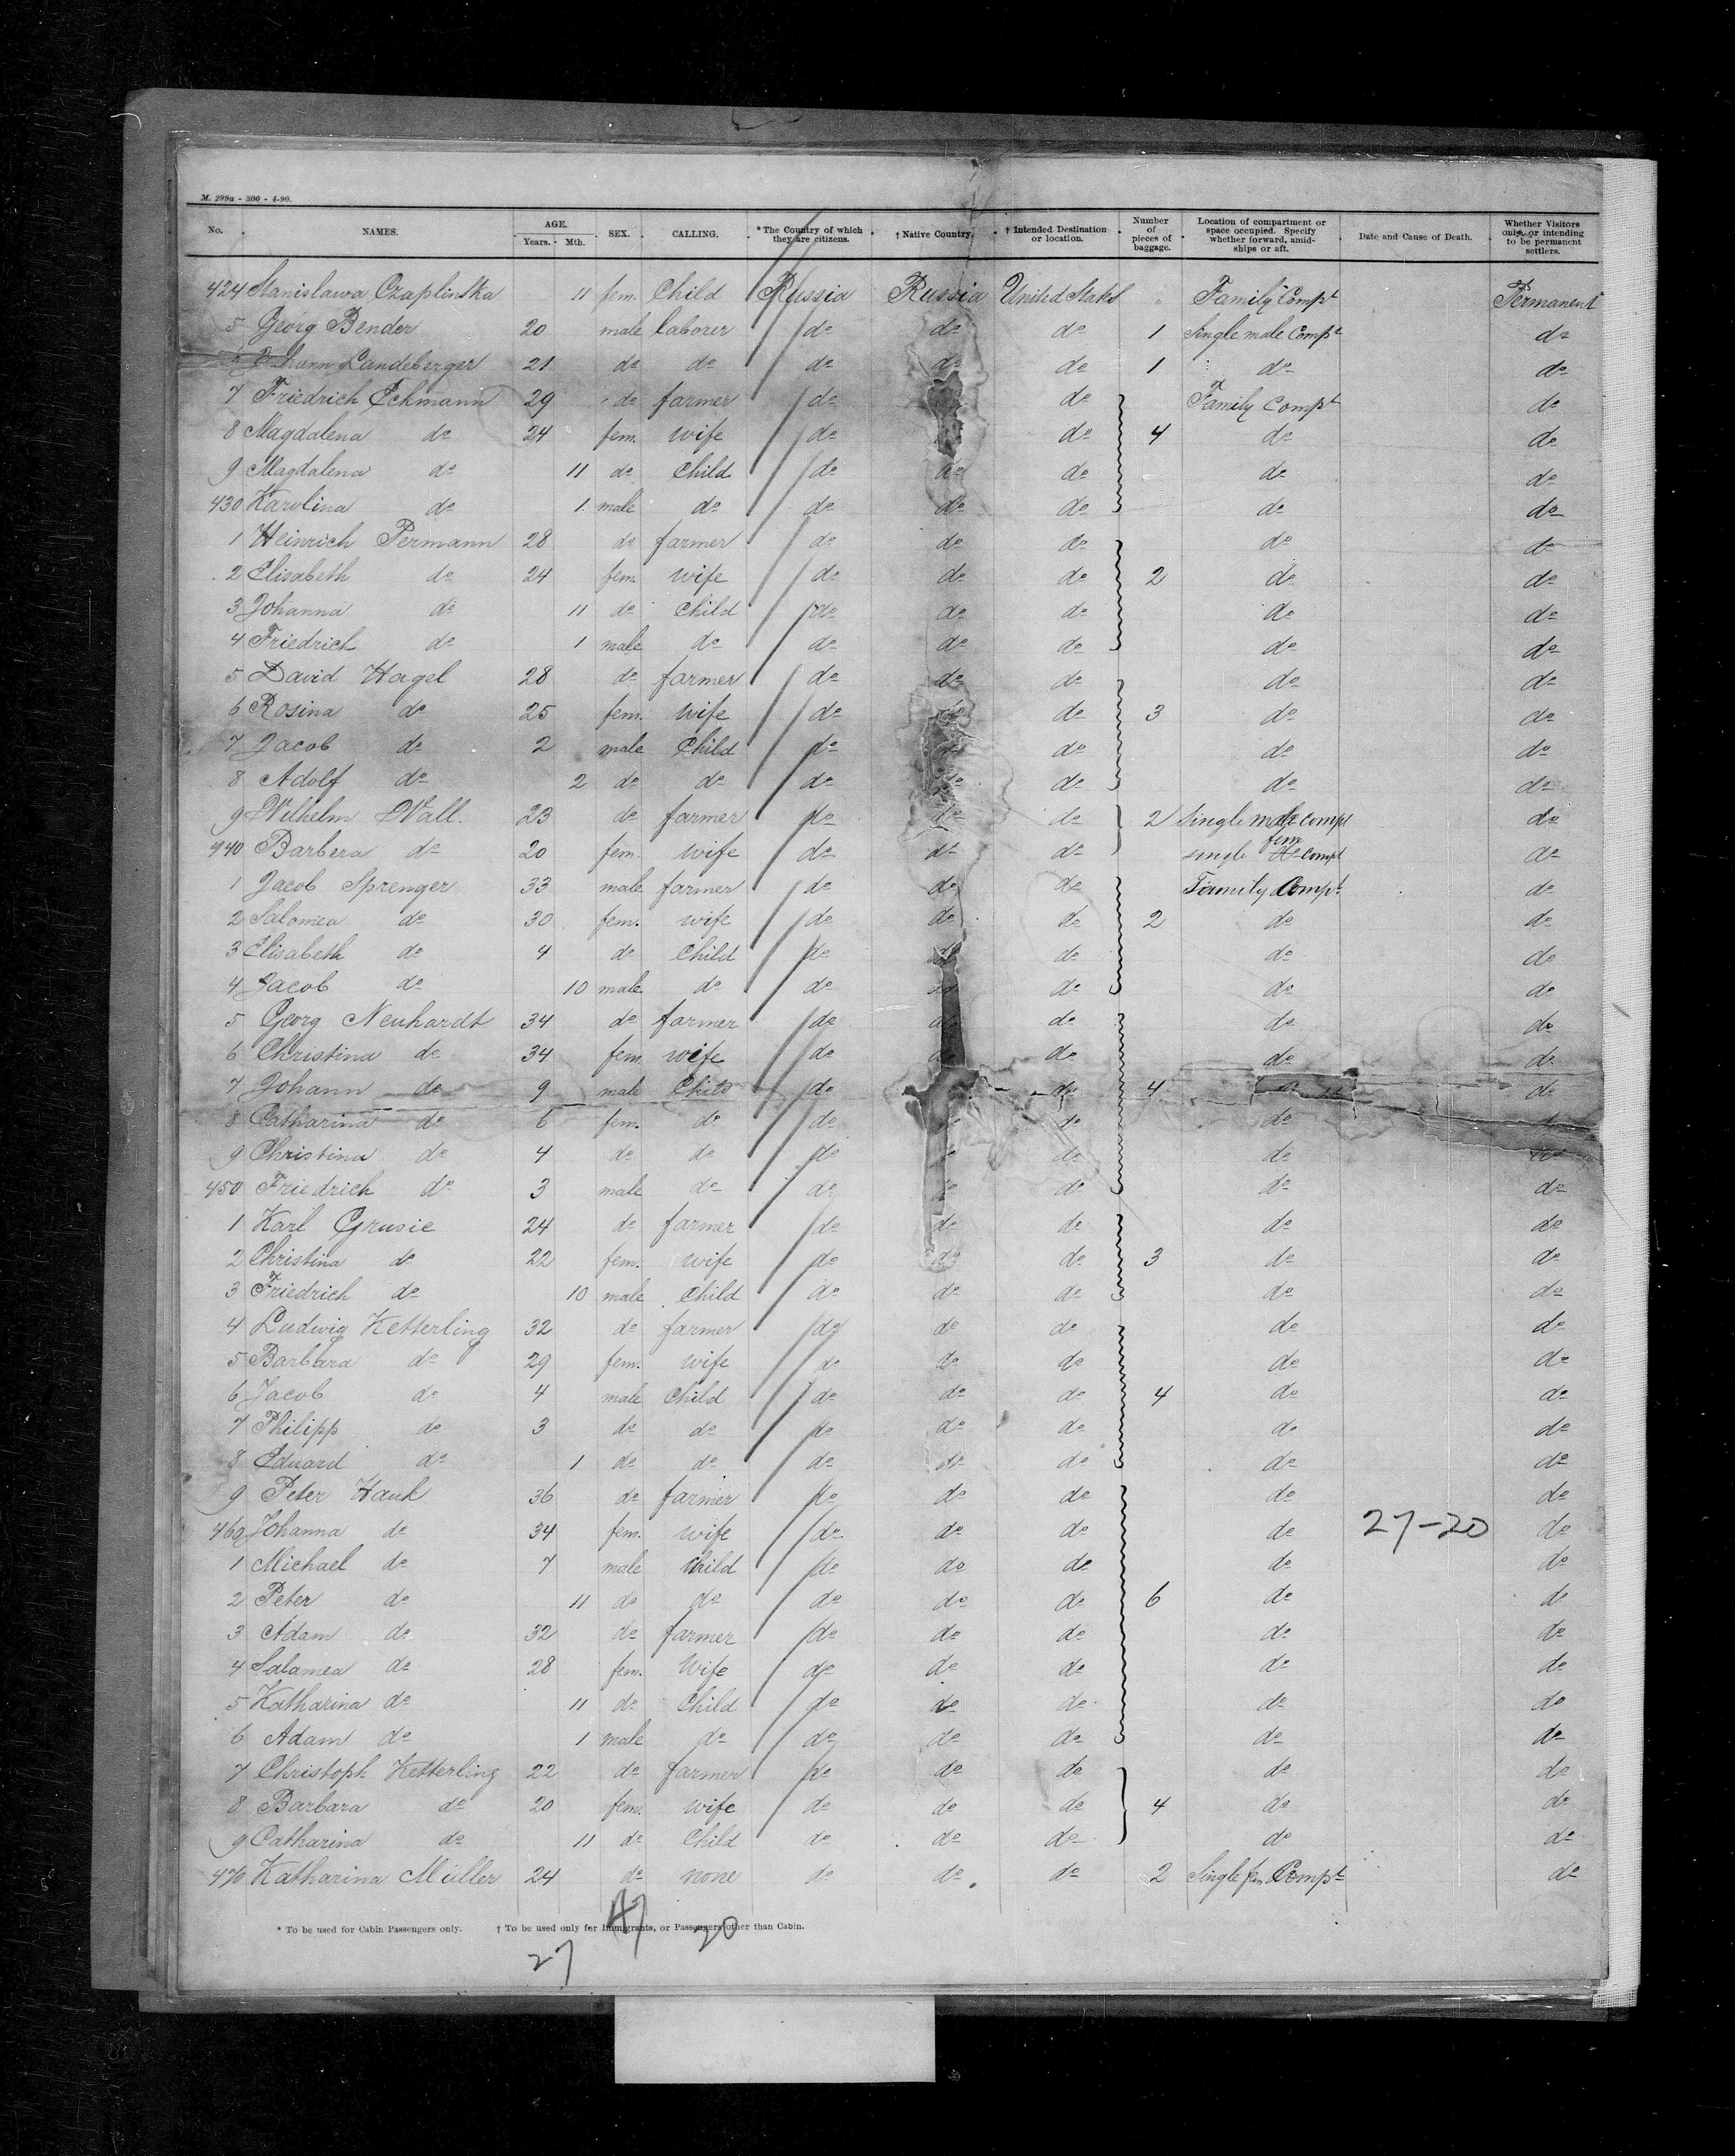 M. 299a - 300 - 4-90.
No. NAMES. AGE. Years. Mth. SEX. CALLING. *The Country of which they are citizens. † Native Country. † Intended Destination or location. Number of pieces of baggage. Location of compartment or space occupied. Specify whether forward, amidships or aft. Date and Cause of Death. Whether Visitors only, or intending to be permanent settlers.
424 Stanislawa Czaplinska 11 fem. Child Russia Russia United States Family Compt Permanent
5 Georg Bender 20 male laborer do do do 1 Single male Compt do
Landeberger 21 do do do do do 1 do do
7 Friedrich Eckmann 29 do farmer do do Family Compt do
8 Magdalena do 24 fem. wife do do 4 do do
9 Magdalena do 11 do Child do do do do do
430 Karolina do 1 male do do do do do do
1 Heinrich Permann 28 do farmer do do do do do
2 Elisabeth do 24 fem. wife do do do 2 do do
3 Johanna do 11 do Child do do do do do
4 Friedrich do 1 male do do do do do do
5 David Hagel 28 do farmer do do do do do
6 Rosina do 25 fem. wife do do do 3 do do
7 Jacob do 2 male Child do do do do do
8 Adolf do 2 do do do do do do do
9 Wilhelm Wall. 23 do farmer do do do 2 Single male Compt do
440 Barbera do 20 fem. wife do do do single fem Compt do
1 Jacob Sprenger 33 male farmer do do do Family Compt do
2 Salomea do 30 fem. wife do do do 2 do do
3 Elisabeth do 4 do Child do do do do do
4 Jacob do 10 male do do do do do do
5 Georg Neuhardt 34 do farmer do do do do do
6 Christina do 34 fem. wife do do do do do
7 Johann do 9 male Child do do 4 do
8 Catharina do 6 fem. do do do do do
9 Christina do 4 do do do do do do
450 Friedrich do 3 male do do do do do
1 Karl Grusie 24 do farmer do do do do do
2 Christina do 22 fem. wife do do do 3 do do
3 Friedrich do 10 male Child do do do do do
4 Ludwig Ketterling 32 do farmer do do do do do
5 Barbara do 29 fem. wife do do do do do
6 Jacob do 4 male Child do do do 4 do do
7 Philipp do 3 do do do do do do do
8 Eduard do 1 do do do do do do do
9 Peter Hauk 36 do farmer do do do do do
460 Johanna do 34 fem. wife do do do do 27-20 do
1 Michael do 7 male Child do do do do do
2 Peter do 11 do do do do do 6 do do
3 Adam do 32 do farmer do do do do do
4 Salamea do 28 fem. Wife do do do do do
5 Katharina do 11 do Child do do do do do
6 Adam do 1 male do do do do do do
7 Christoph Ketterling 22 do farmer do do do do do
8 Barbara do 20 fem. wife do do do 4 do do
9 Catharina do 11 do Child do do do do do
470 Katharina Müller 24 do none do do do 2 Single fem Compt do
* To be used for Cabin Passengers only. † To be used only for Immigrants, or Passengers other than Cabin.
47 20
27